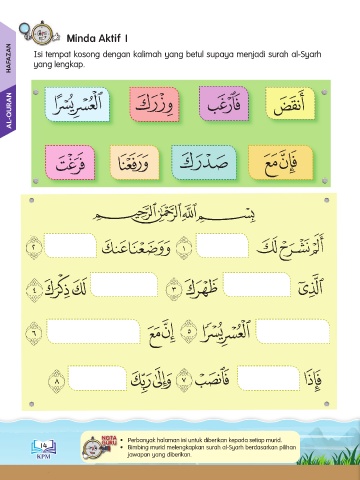 HAFAZAN
AL-QURAN
Minda Aktif 1
Isi tempat kosong dengan kalimah yang betul supaya menjadi surah al-Syarh
yang lengkap.
أَنقَضَ فَٱرْغَب وِزْرَكَ ٱلْعُسْرِ يُسْرًا
فَإِنَّ مَعَ صَدْرَكَ وَرَفَعْنَا فَرَغْتَ
بِسْمِ ٱللَّهِ ٱلرَّحْمَٰنِ ٱلرَّحِيمِ
أَلَمْ نَشْرَحْ لَكَ ١ وَوَضَعْنَا عَنكَ ٢
ٱلَّذِىٓ ظَهْرَكَ ٣ لَكَ ذِكْرَكَ ٤
ٱلْعُسْرِ يُسْرًا ٥ إِنَّ مَعَ ٦
فَإِذَا فَٱنصَبْ ٧ وَإِلَىٰ رَبِّكَ ٨
14
KPM
NOTA
GURU
• Perbanyak halaman ini untuk diberikan kepada setiap murid.
• Bimbing murid melengkapkan surah al-Syarh berdasarkan pilihan
jawapan yang diberikan.